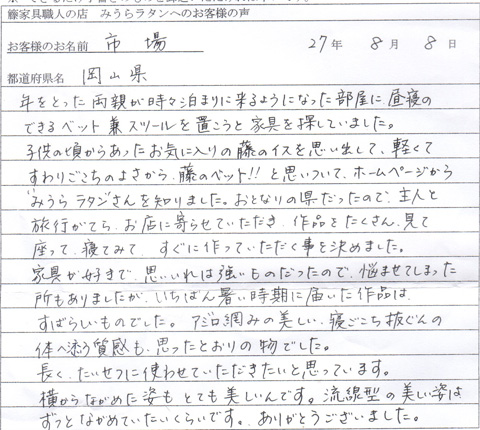 籐家具職人の店 みうらラタンへのお客様の声
お客様のお名前 市場 27年 8月 8日
都道府県名 岡山県
年をとった両親が時々泊まりに来るようになった部屋に昼寝の
できるベット兼スツールを置こうと家具を探していました。
子供の頃からあったお気に入りの藤のイスを思い出して、軽くて
すわりごこちのよさから、藤のベット!!と思いついて、ホームページから
みうらラタンさんを知りました。おとなりの県だったので、主人と
旅行がてら、お店に寄らせていただき、作品をたくさん、見て
座って、寝てみて、すぐに作っていただく事を決めました。
家具が好きで、思いいれは強いものだったので、悩ませてしまった
所もありましたが、いちばん暑い時期に届いた作品は、
すばらしいものでした。アジロ網みの美しい、寝ごこち抜ぐんの
体へ添う質感も、思ったとおりの物でした。
長く、たいせつに使わせていただきたいと思っています。
横からながめた姿もとても美しいんです。流線型の美しい姿は
ずっとながめていたいくらいです。ありがとうございました。